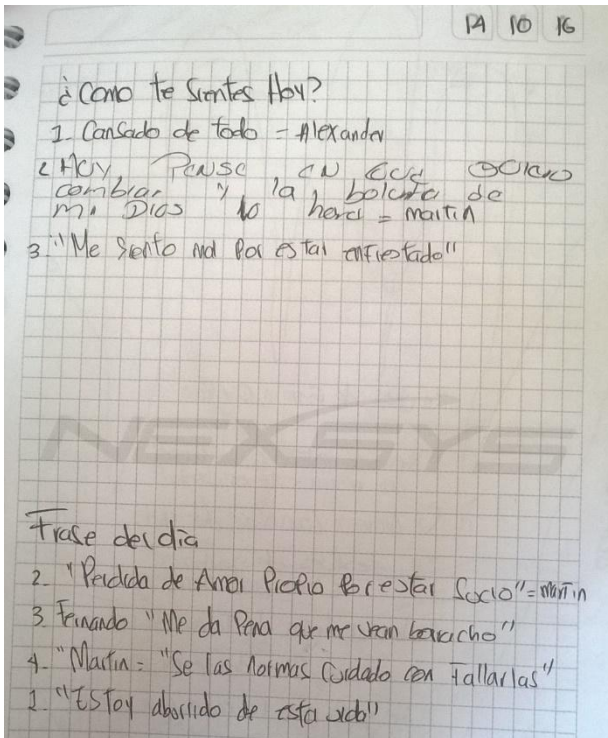 14 10 16
¿Como te sientes Hoy?
1 Cansado de todo = Alexander
2 Hoy, Pense, en que
cambiar y la de
mi Dios lo hare = martin
3. "Me siento mal Por estar enfiestado"
NEXSYS
Frase del dia
2. "Perdida de Amor Propio Por estar Socio" = martin
3 Fernando "Me da Pena que me vean boracho"
4. "Martin = "Se las normas cuidado con Fallarlas"
1. "ESToy aburrido de esta vida"